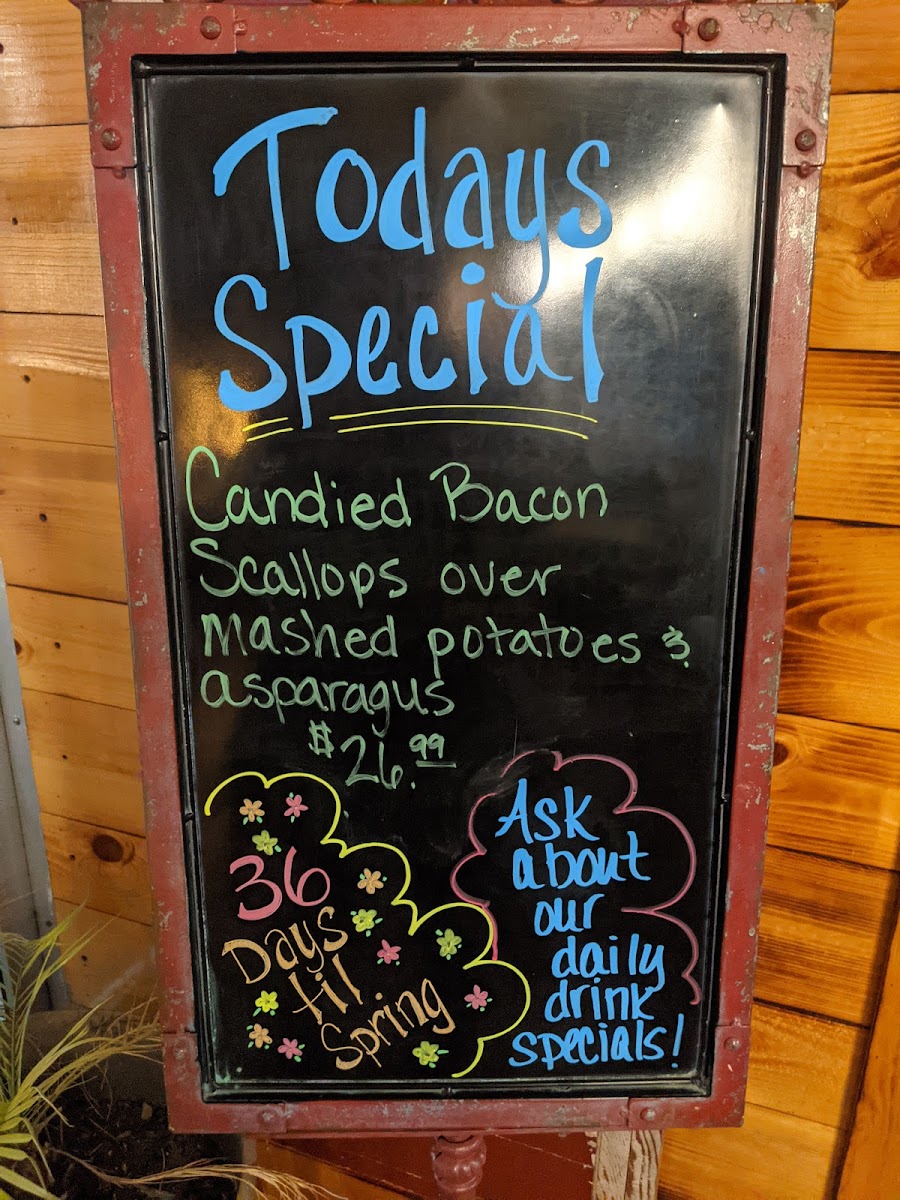 Todays
Special
Candied Bacon
Scallops over
mashed potatoes &
asparagus
$26.99
36
Days
til
Spring
Ask
about
our
daily
drink
specials!